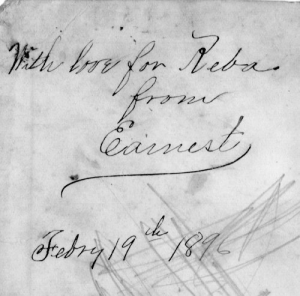 With love for Reba
from
Earnest
Febry 19th 1896